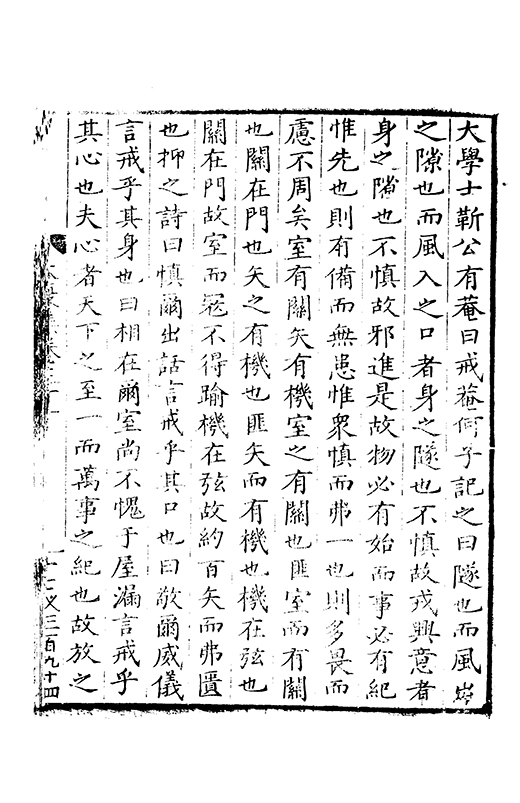 大學士靳公有菴曰戒菴何子記之曰隧也而風
之隙也而風入之口者身之隧也不慎故戎興意者
身之隙也不慎故邪進是故物必有始而事必有紀
惟先也則有備而無患惟衆慎而弗一也則多畏而
慮不周矣室有關矢有機室之有關也匪室而有關
也關在門也矢之有機也匪矢而有機也機在弦也
關在門故室而冦不得踰機在弦故約百矢而弗匱
也抑之詩曰慎爾出話言戒乎其口也曰敬爾威儀
言戒乎其身也曰相在爾室尚不愧于屋漏言戒乎
其心也夫心者天下之至一而萬事之紀也故放之